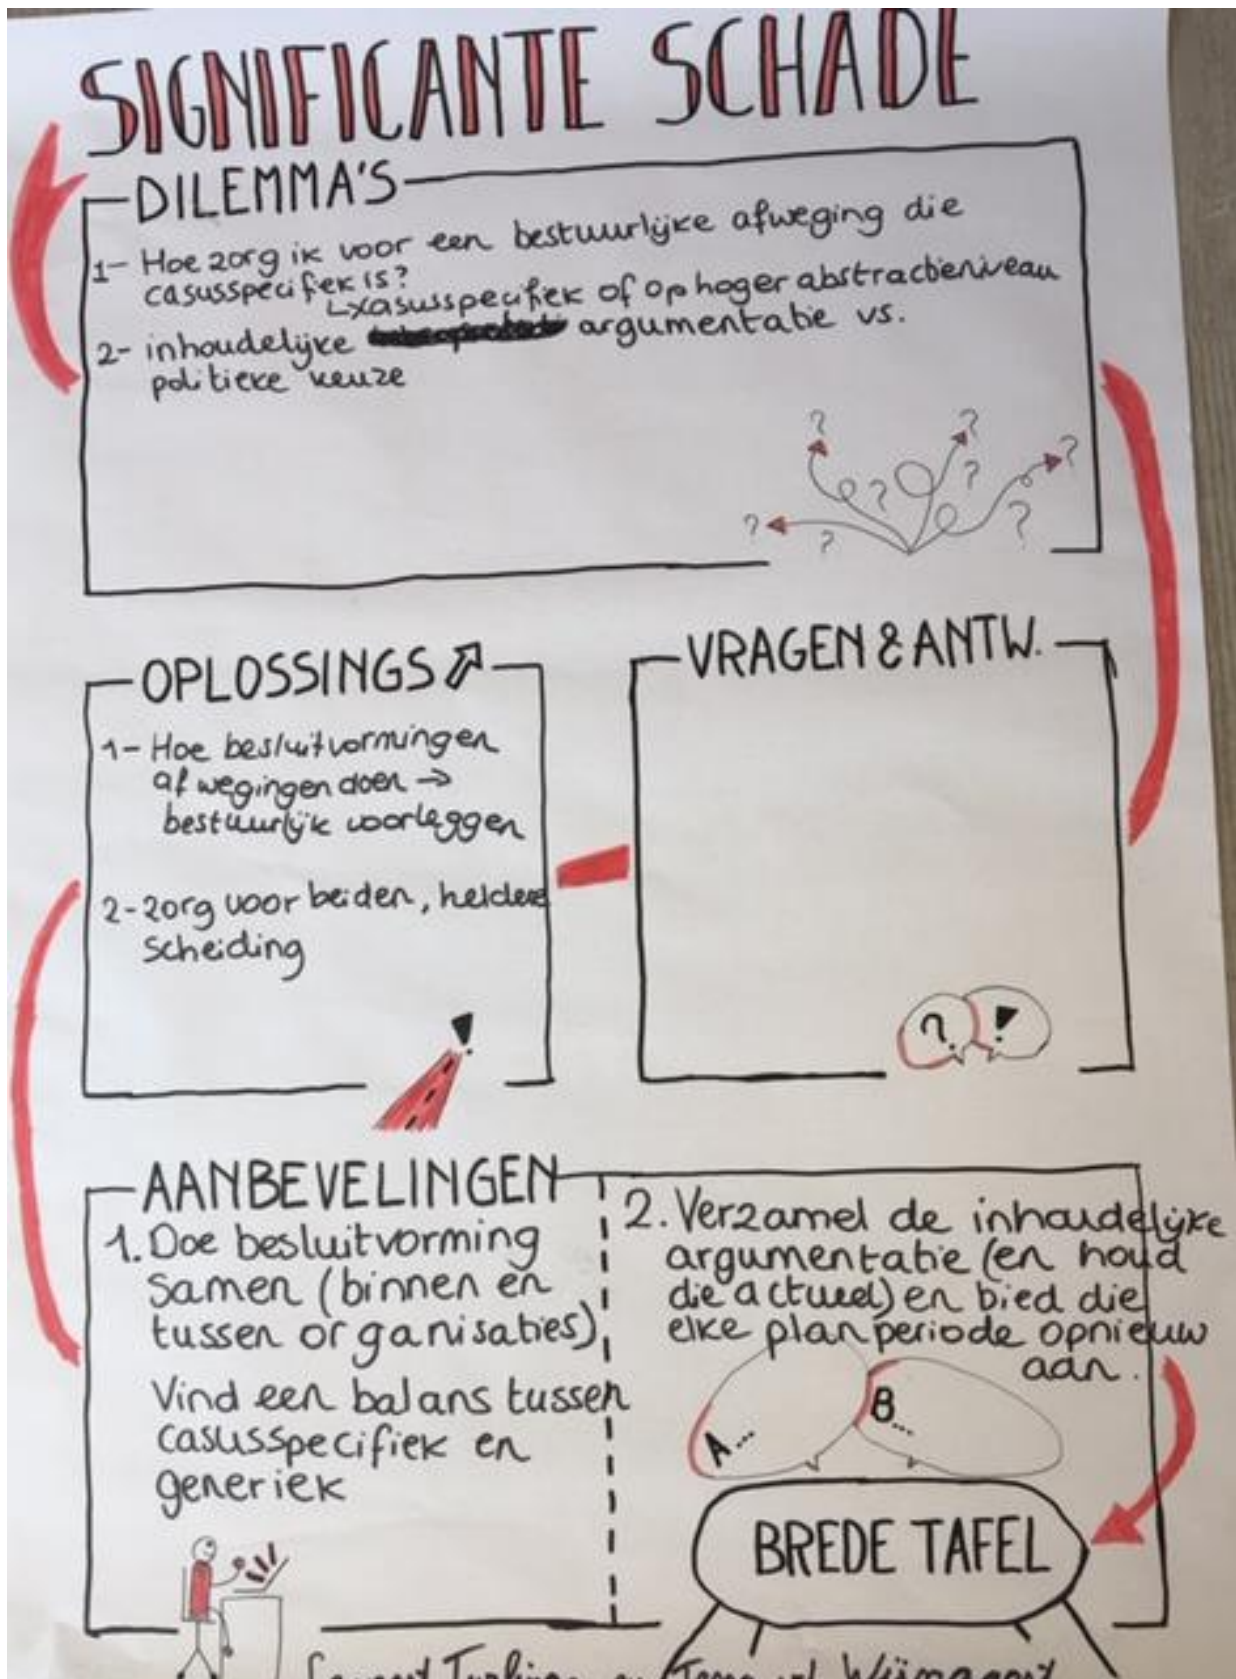 SIGNIFICANTE SCHADE
DILEMMA'S
1- Hoe zorg ik voor een bestuurlijke afweging die
casusspecifiek is?
↳casusspecifiek of op hoger abstractieniveau
2- inhoudelijke argumentatie vs.
politieke keuze
? ? ? ? ? ? ? ?
OPLOSSINGS
1- Hoe besluitvormingen
afwegingen doen →
bestuurlijk voorleggen
2- zorg voor beiden, heldere
scheiding
!
VRAGEN & ANTW.
? !
AANBEVELINGEN
1. Doe besluitvorming
samen (binnen en
tussen organisaties)
Vind een balans tussen
casusspecifiek en
generiek
2. Verzamel de inhoudelijke
argumentatie (en houd
die actueel) en bied die
elke planperiode opnieuw
aan.
A...
B...
BREDE TAFEL